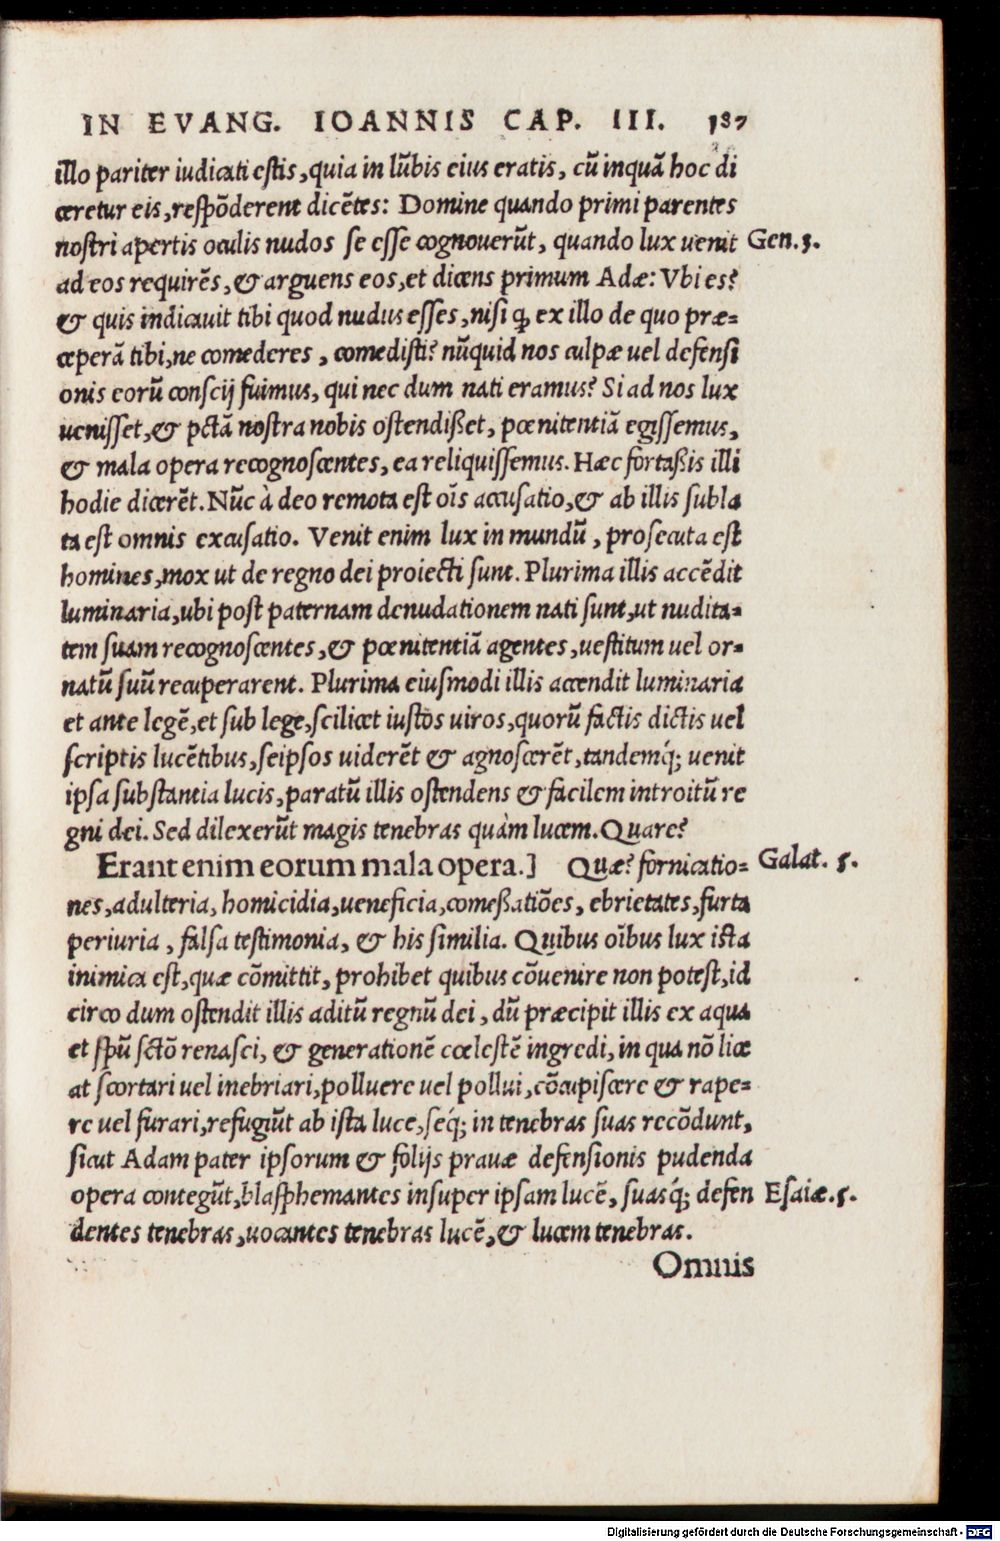 IN EVANG. IOANNIS CAP. III. 187
illo pariter iudicati estis, quia in lūbis eius eratis, cū inquā hoc di
ceretur eis, respōderent dicētes: Domine quando primi parentes
nostri apertis oculis nudos se esse cognouerūt, quando lux uenit Gen.3.
ad eos requirēs, & arguens eos, et dicens primum Adæ: Vbi es?
& quis indicauit tibi quod nudus esses, nisi ꝙ ex illo de quo præ=
ceperā tibi, ne comederes, comedisti? nūquid nos culpæ uel defensi
onis eorū conscij fuimus, qui nec dum nati eramus? Si ad nos lux
uenisset, & pctā nostra nobis ostendißet, pœnitentiā egissemus,
& mala opera recognoscentes, ea reliquissemus. Hæc fortaßis illi
hodie dicerēt. Nūc à deo remota est oīs accusatio, & ab illis subla
ta est omnis excusatio. Venit enim lux in mundū, prosecuta est
homines, mox ut de regno dei proiecti sunt. Plurima illis accēdit
luminaria, ubi post paternam denudationem nati sunt, ut nudita=
tem suam recognoscentes, & pœnitentiā agentes, uestitum uel or=
natū suū recuperarent. Plurima eiusmodi illis accendit luminaria
et ante legē, et sub lege, scilicet iustos uiros, quorū factis dictis uel
scriptis lucētibus, seipsos uiderēt & agnoscerēt, tandemq́; uenit
ipsa substantia lucis, paratū illis ostendens & facilem introitū re
gni dei. Sed dilexerūt magis tenebras quàm lucem. Quare?
Erant enim eorum mala opera.] Quæ? fornicatio= Galat. 5.
nes, adulteria, homicidia, ueneficia, comeßatiōes, ebrietates, furta
periuria, falsa testimonia, & his similia. Quibus oībus lux ista
inimica est, quæ cōmittit, prohibet quibus cōuenire non potest, id
circo dum ostendit illis aditū regnū dei, dū præcipit illis ex aqua
et spū sctō renasci, & generationē cœlestē ingredi, in qua nō lice
at scortari uel inebriari, polluere uel pollui, cōcupiscere & rape=
re uel furari, refugiūt ab ista luce, seq́; in tenebras suas recōdunt,
sicut Adam pater ipsorum & folijs prauæ defensionis pudenda
opera contegūt, blasphemantes insuper ipsam lucē, suasq́; defen Esaiæ.5.
dentes tenebras, uocantes tenebras lucē, & lucem tenebras.
Omnis
Digitalisierung gefördert durch die Deutsche Forschungsgemeinschaft - DFG